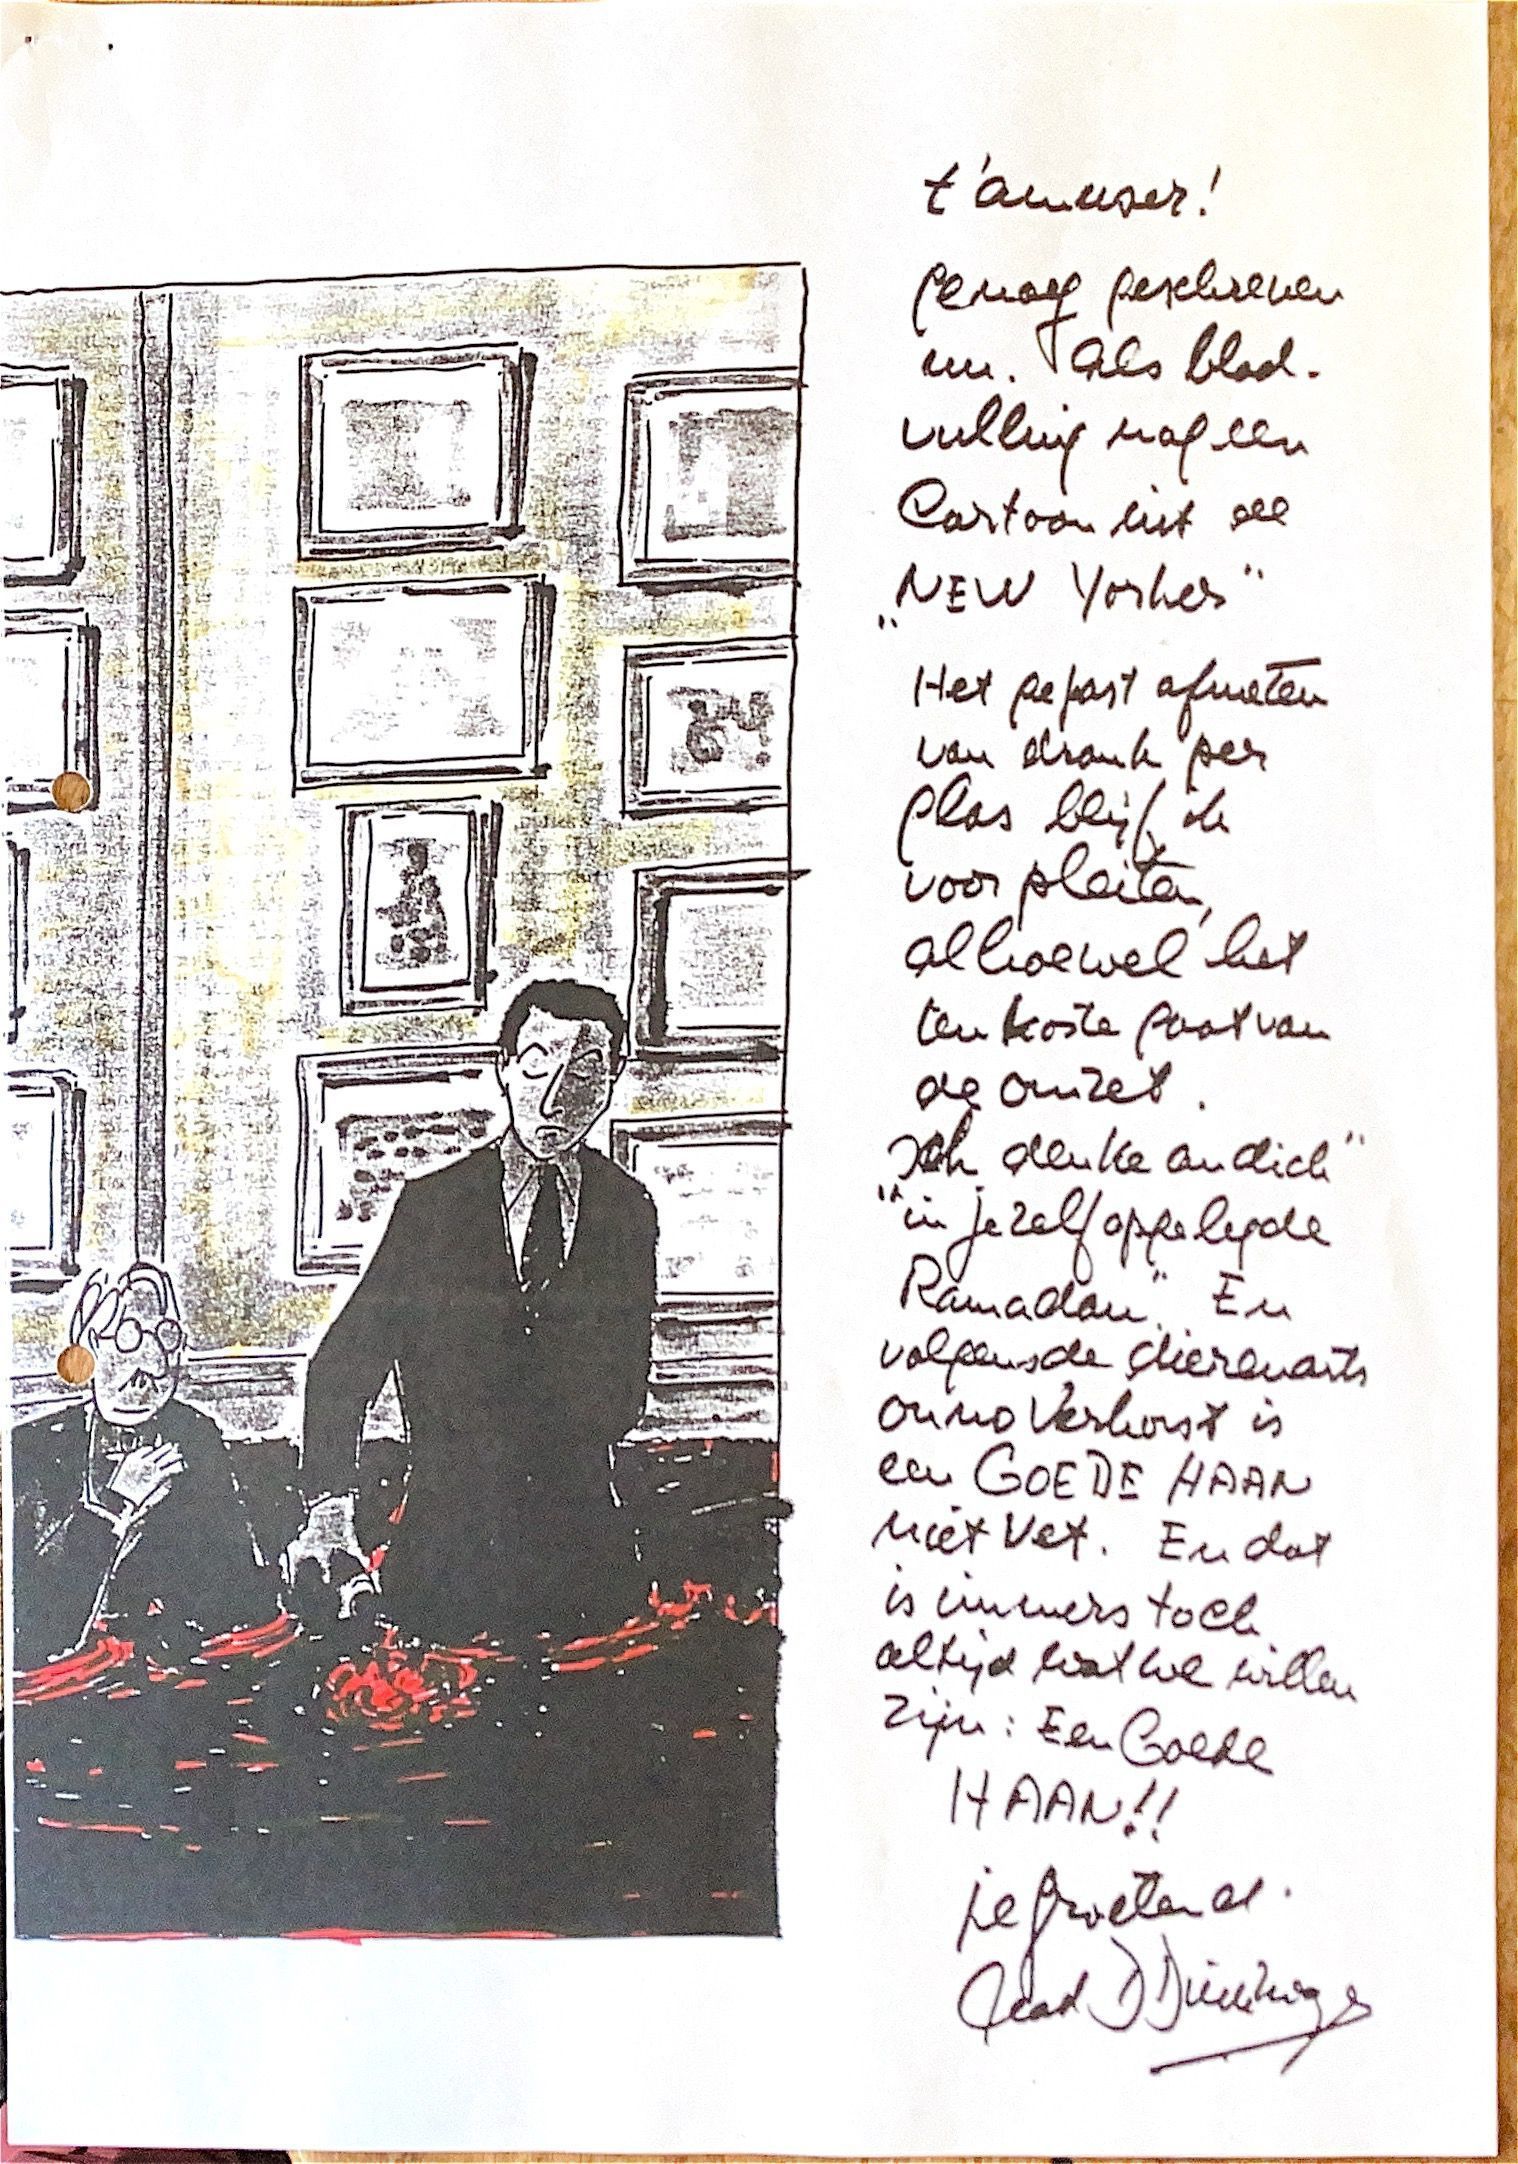 t'amuser!
genoeg geschreven
nu. Als blad-
vulling nog een
Cartoon uit de
"NEW Yorker"
Het gepast afmeten
van drank per
glas blijf ik
voor pleiten,
alhoewel het
ten koste gaat van
de omzet.
Ich denke an dich"
"in je zelf opgelegde
Ramadan". En
volgens de dierenarts
Onno Verhorst is
een GOEDE HAAN
niet Vet. En dat
is immers toch
altijd wat we willen
zijn: Een Goede
HAAN!!
je groetend.